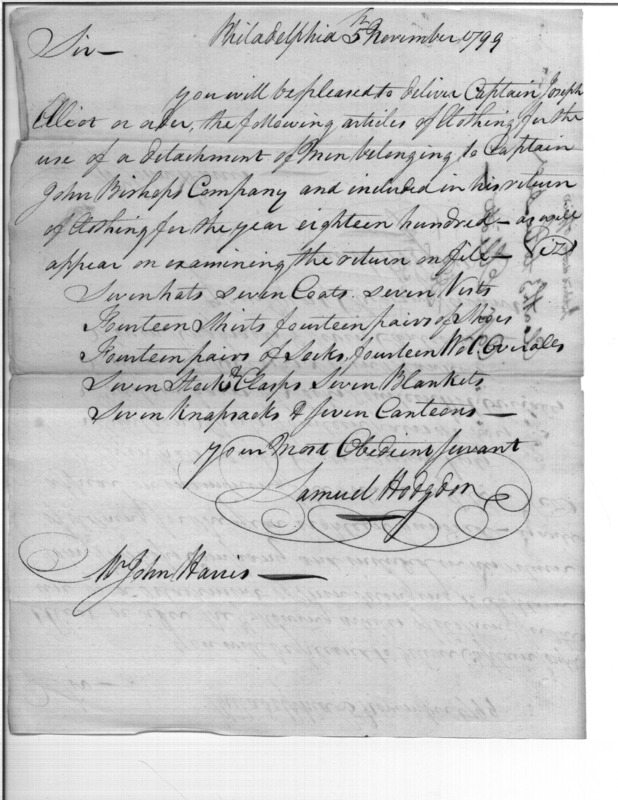 Philadelphia 5th November 1799
Sir—
you will be pleased to deliver Captain Joseph
Elliot or order, the following articles of Clothing for the
use of a detachment of Men belonging to Captain
John Bishops Company and included in his return
of Clothing for the year eighteen hundred— as will
appear on examining the return on file— Viz
Seven hats Seven Coats. Seven Vests
Fourteen Shirts fourteen pairs of Shoes
Fourteen pairs of Socks, fourteen Wol. Overalls
Seven Stocks & Clasps Seven Blankets
Seven Knapsacks & Seven Canteens—
your Most Obedient Servant
Samuel Hodgdon
Mr John Harris—